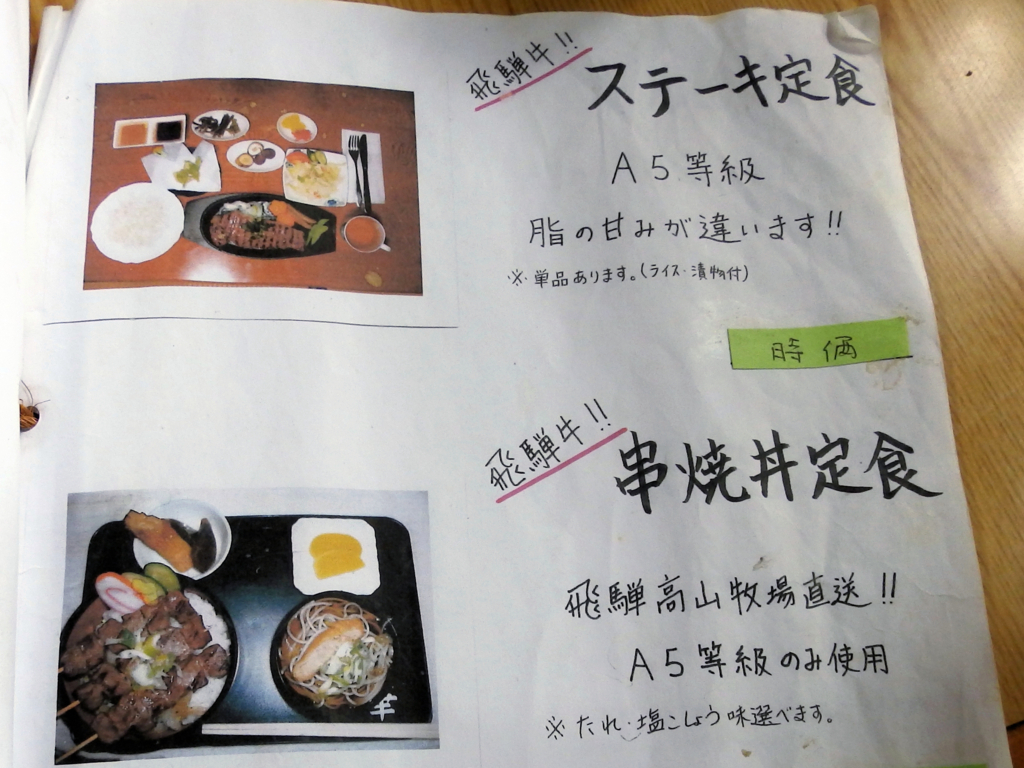 飛騨牛!!
ステーキ定食
A5等級
脂の甘みが違います!!
※単品あります。(ライス・漬物付)
時価
飛騨牛!!
串焼丼定食
飛騨高山牧場直送!!
A5等級のみ使用
※たれ・塩こしょう味選べます。